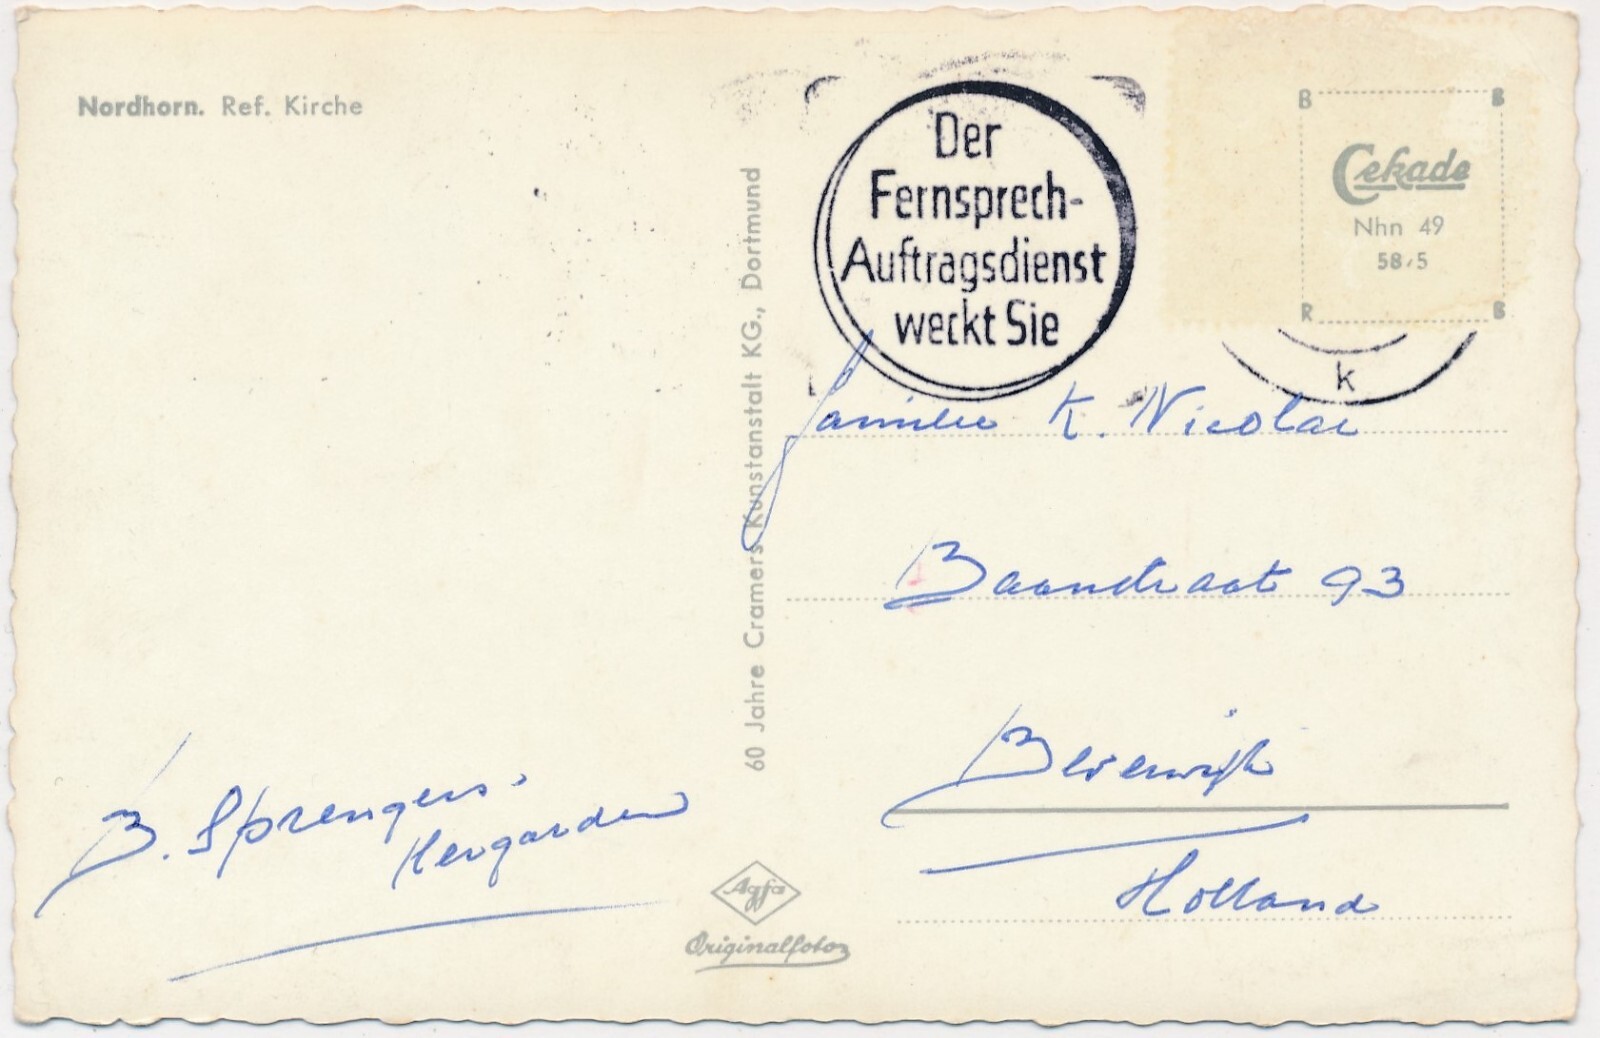 Nordhorn. Ref. Kirche
Der
Fernsprech-
Auftragsdienst
weckt Sie
B B
Cekade
Nhn 49
58,5
R B
k
60 Jahre Cramers Kunstanstalt KG., Dortmund
Familie K. Nicolai
Baanstraat 93
Beverwijk
Holland
B. Sprengers.
Hergarden
Agfa
Originalfoto